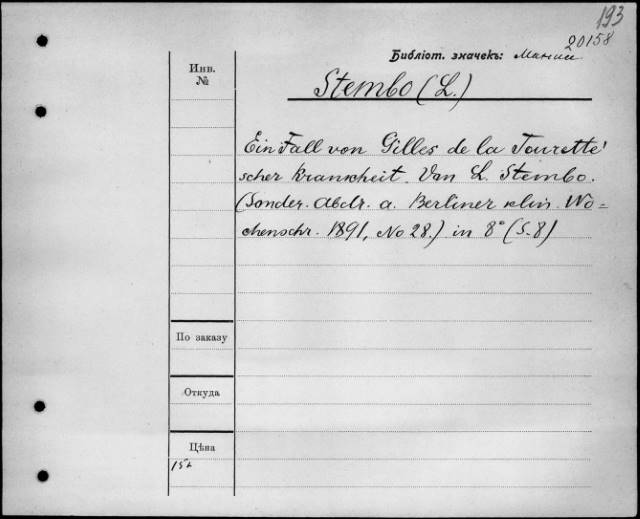 193
20158
Библіот. значекъ:
Инв.
№
Stembo (L.)
Ein Fall von Gilles de la Tourette'
scher Krankheit. Von L. Stembo.
(Sonder. Abdr. a. Berliner klin. Wo=
chenschr. 1891, No 28.) in 8° (S. 8)
По заказу
Откуда
Цѣна
15к